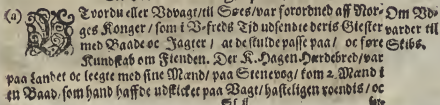 (a) Tvordu eller Vdvagt/til Søes/var forordned aff Nor-
ges Konger/ som i V-freds Tid udsendte deris Giester
med Baade oc Jagter/ at de skulde passe paa/ oc føre
Kundskab om Fienden. Der K. Hagen-Herdebred/ var
paa Landet oc leegte med sine Mænd/ paa Steenevog/ kom 2. Mænd i
en Baad/ som hand haffde udskicket paa Vagt/ hasteligen roendis/ oc
Om Vd-
varder til
Skibs.